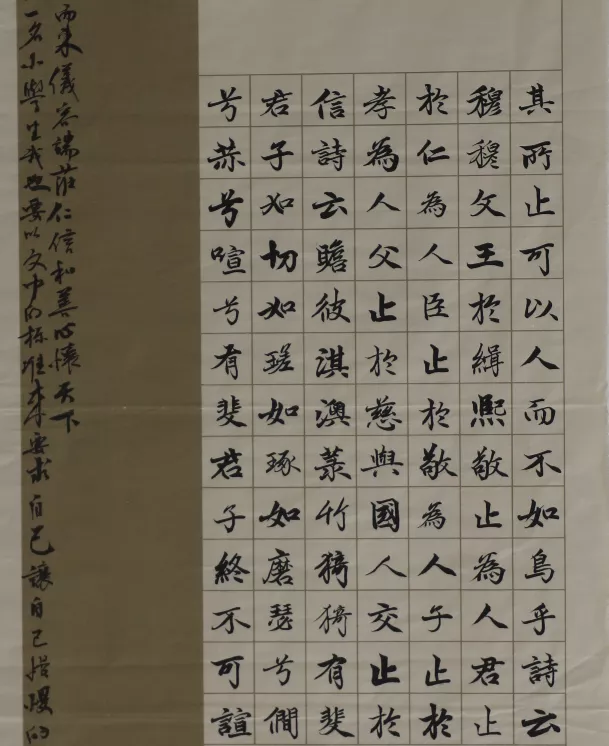 其所止可以人而不如鳥乎詩云
穆穆文王於緝熙敬止為人君止
於仁為人臣止於敬為人子止於
孝為人父止於慈與國人交止於
信詩云瞻彼淇澳菉竹猗猗有斐
君子如切如瑳如琢如磨瑟兮僩
兮赫兮喧兮有斐君子終不可諠
而来儀容端莊仁信和善心懷天下
一名小學生我也要以文中的标准来要求自己讓自己慢慢的